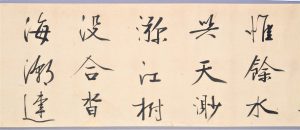 惟餘水
與天渺
漭江樹
没合沓
海潮達